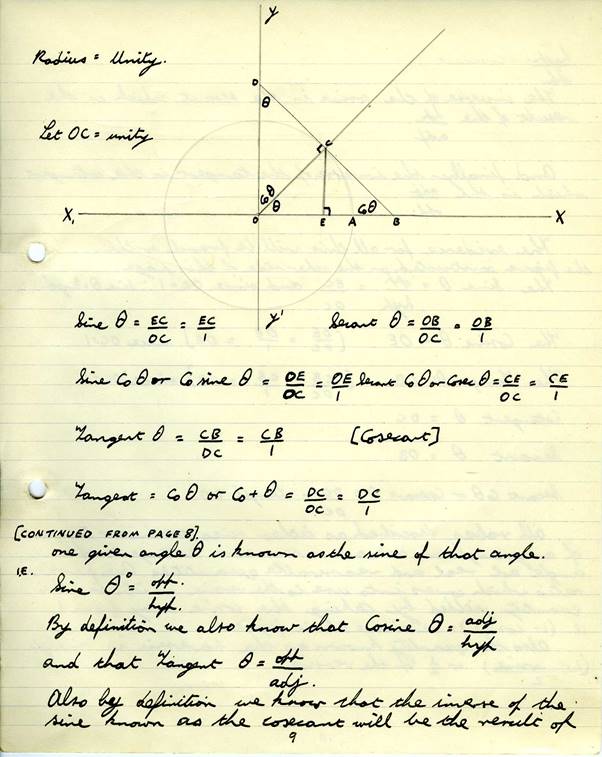 Y
Radius = Unity.
D
θ
Let OC = unity
C
Coθ
θ
Coθ
X,
O
E
A
B
X
Y'
Sine θ = EC/OC = EC/1 Secant θ = OB/OC = OB/1
Sine Co θ or Co sine θ = OE/OC = OE/1 Secant Co θ or Cosec θ = CE/OC = CE/1
Tangent θ = CB/OC = CB/1 [Cosecant]
Tangent = Co θ or Co + θ = DC/OC = DC/1
[CONTINUED FROM PAGE 8].
one given angle θ is known as the sine of that angle.
I.E.
Sine θ° = opp./hyp.
By definition we also know that Cosine θ = adj/hyp
and that Tangent θ = opp/adj.
Also by definition we know that the inverse of the
sine known as the cosecant will be the result of
9